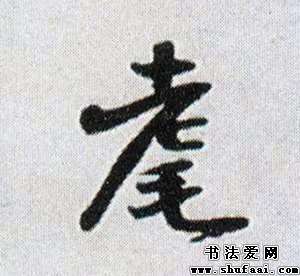 耄
书法爱网
www.shufaai.com